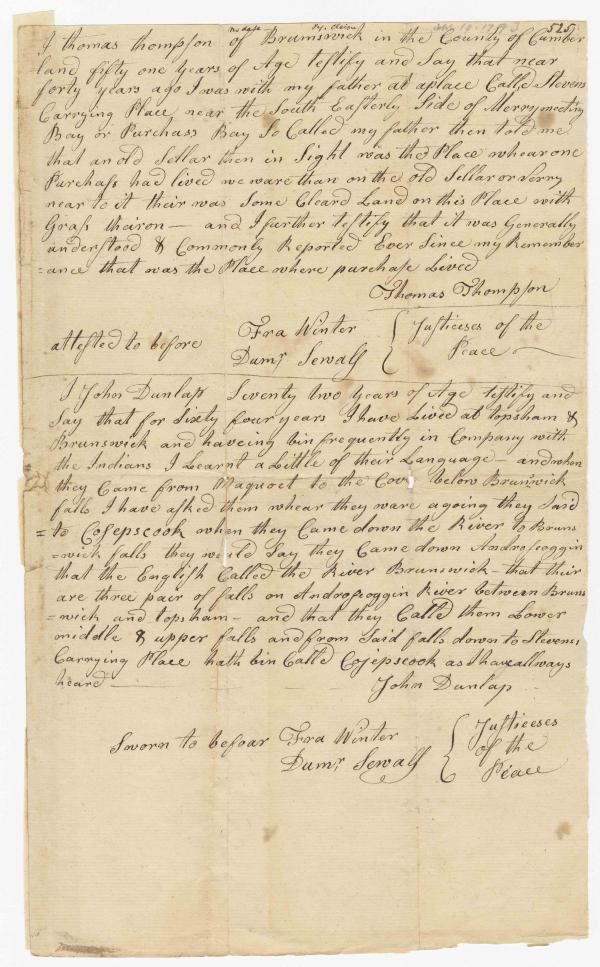 no date
525
I Thomas Thompson of Brumswick in the County of Cumber
land fifty one years of Age testify and Say that near
forty years ago I was with my father at aplace Calld Stevens
Carrying Place, near the South Easterly Side of Merrymeeting
Bay or Purchass Bay So Called my father then told me
that an old Sellar then in Sight was the Place whear one
Purchass had lived we ware than on the old Sellar or Verry
near to it their was Some Cleard Land on this Place with
Grass thairon — and I further testify that it was Generally
understood & Commonly Reported Ever Since my Remember
=ance that was the Place where purchase Lived
Thomas Thompson
attested to before
Fra Winter
Dumr Sewall
Justiceses of the
Peace
I John Dunlap Seventy two years of Age testify and
Say that for Sixty four years I have Lived at topsham &
Brunswick and haveing bin frequently in Company with
the Indians I Learnt a Little of their Language — and when
they Came from Maquoet to the Cove below Brunswick
falls I have asked them whear they ware agoing they Said
= to Cosepscook when they Came down the River to Bruns
=wick falls they would Say they Came down Androscoggin
that the English Called the River Brunswick — that their
are three pair of falls on Androscoggin River between Bruns
=wick and topsham — and that they Calld them Lower
middle & upper falls and from Said falls down to Stevens
Carrying Place hath bin Calld Cosepscook as I have allways
heard
John Dunlap
Sworn to befoar
Fra Winter
Dumr Sewall
Justiceses
of the
Peace